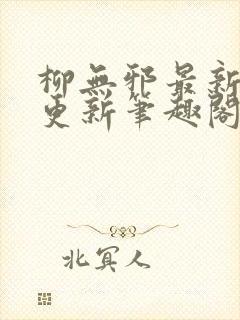 柳無邪最新
更新筆趣閣
北冥人